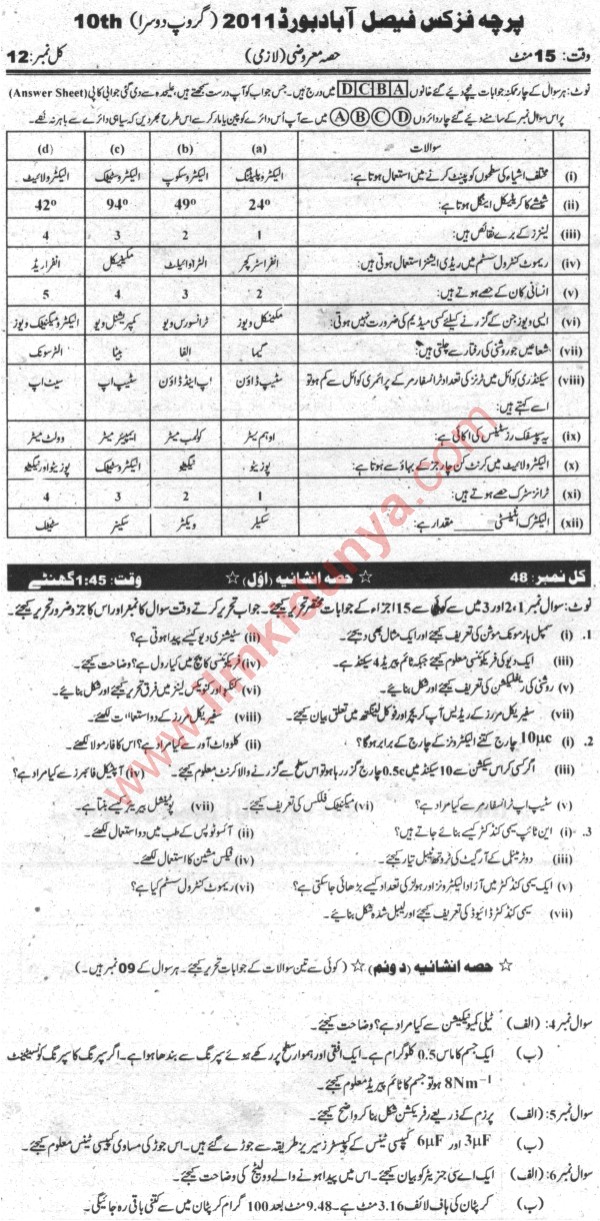 پرچہ فزکس فیصل آباد بورڈ 2011 (گروپ دوسرا) 10th
وقت: 15 منٹ حصہ معروضی (لازمی) کل نمبر: 12
نوٹ: ہر سوال کے چار ممکنہ جوابات نیچے دیئے گئے خانوں D C B A میں درج ہیں۔ جس جواب کو آپ درست سمجھتے ہیں، علیحدہ سے دی گئی جوابی کاپی (Answer Sheet)
پر اس سوال نمبر کے سامنے دیئے گئے چار دائروں A B C D میں سے آپ اُس دائرے کو پین یا مارکر سے اس طرح بھر دیں کہ سیاہی دائرے سے باہر نہ نکلے۔
سوالات (a) (b) (c) (d)
(i) مختلف اشیاء کی سطحوں کو پینٹ کرنے میں استعمال ہوتا ہے: الیکٹروپلیٹنگ الیکٹروسکوپ الیکٹروسٹیٹک الیکٹرولائیٹ
(ii) شیشے کا کریٹیکل اینگل ہوتا ہے: 24° 49° 94° 42°
(iii) لینز کے برے نقائص ہیں: 1 2 3 4
(iv) ریموٹ کنٹرول سسٹم میں ریڈی ایشنز استعمال ہوتی ہیں: انفراسٹرکچر الٹراوائیلٹ مکینیکل انفراریڈ
(v) انسانی کان کے حصے ہوتے ہیں: 2 3 4 5
(vi) ایسی ویوز جن کے گزرنے کیلئے کسی میڈیم کی ضرورت نہیں ہوتی: مکینیکل ویوز ٹرانسورس ویو کمپریشنل ویو الیکٹرومیگنیٹک ویوز
(vii) شعاعیں جو روشنی کی رفتار سے چلتی ہیں: گیما الفا بیٹا الٹرسونک
(viii) سیکنڈری کوائل میں ٹرنز کی تعداد ٹرانسفارمر کے پرائمری کوائل سے کم ہو تو اسے کہتے ہیں: سٹیپ ڈاؤن اپ اینڈ ڈاؤن سٹیپ اپ سیٹ اپ
(ix) یہ سپیسفک رزسٹینس کی اکائی ہے: اوہم میٹر کولمب میٹر ایمپیئر میٹر وولٹ میٹر
(x) الیکٹرولائیٹ میں کرنٹ کن چارجز کے بہاؤ سے ہوتا ہے: پوزیٹو نیگیٹو الیکٹروسٹیٹک پوزیٹو اور نیگیٹو
(xi) ٹرانزسٹر کے حصے ہوتے ہیں: 1 2 3 4
(xii) الیکٹرک انٹینسٹی ______ مقدار ہے: سکیلر ویکٹر سکینر سٹیٹک
کل نمبر: 48 ☆ حصہ انشائیہ (اوّل) ☆ وقت: 1:45 گھنٹے
نوٹ: سوال نمبر 1، 2 اور 3 میں سے کوئی سے 15 اجزاء کے جوابات مختصر تحریر کیجئے۔ جواب تحریر کرتے وقت سوال کا نمبر اور اس کا جز و ضرور تحریر کیجئے۔
1. (i) سمپل ہارمونک موشن کی تعریف کیجئے اور ایک مثال بھی دیجئے۔ (ii) سٹیشنری ویو کیسے پیدا ہوتی ہے؟
(iii) ایک ویو کی فریکوئنسی معلوم کیجئے جبکہ ٹائم پیریڈ 4 سیکنڈ ہے۔ (iv) فریکوئنسی کا پچ میں کیا رول ہے؟ وضاحت کیجئے۔
(v) روشنی کی ریفلیکشن کی تعریف کیجئے اور شکل بنائیے۔ (vi) کنکیو اور کنویکس لینز میں فرق تحریر کیجئے اور شکل بنائیے۔
(vii) سفیریکل مررز کے ریڈیس آف کرویچر اور فوکل لینگتھ میں تعلق بیان کیجئے۔ (viii) سفیریکل مررز کے دو استعمالات لکھئے۔
2. (i) 10μc چارج کتنے الیکٹرونز کے چارج کے برابر ہوگا؟ (ii) کلوواٹ آور سے کیا مراد ہے؟ اس کا فارمولا لکھئے۔
(iii) اگر کسی کراس سیکشن سے 10 سیکنڈ میں 0.5c چارج گزر رہا ہو تو اس سطح سے گزرنے والا کرنٹ معلوم کیجئے۔ (iv) آپٹیکل فائبرز سے کیا مراد ہے؟
(v) سٹیپ اپ ٹرانسفارمر سے کیا مراد ہے؟ (vi) میگنیٹک فلکس کی تعریف کیجئے۔ (vii) پوٹینشل بیریئر کیسے بنتا ہے۔
3. (i) این ٹائپ سیمی کنڈکٹر کیسے بنائے جاتے ہیں؟ (ii) آئسوٹوپس کے طب میں دو استعمال لکھئے۔
(iii) دو ٹرمینل کے آر گیٹ کی ٹروتھ ٹیبل تیار کیجئے۔ (iv) فیکس مشین کا استعمال لکھئے۔
(v) ایک سیمی کنڈکٹر میں آزاد الیکٹرونز اور ہولز کی تعداد کیسے بڑھائی جاسکتی ہے؟ (vi) ریموٹ کنٹرول سسٹم کیا ہے؟
(vii) سیمی کنڈکٹر ڈائیوڈ کی تعریف کیجئے اور لیبل شدہ شکل بنائیے۔
☆ حصہ انشائیہ (دوئم) ☆ (کوئی سے تین سوالات کے جوابات تحریر کیجئے۔ ہر سوال کے 09 نمبر ہیں۔)
سوال نمبر 4: (الف) ٹیلی کمیونیکیشن سے کیا مراد ہے؟ وضاحت کیجئے۔
(ب) ایک جسم کا ماس 0.5 کلوگرام ہے۔ ایک افقی اور ہموار سطح پر رکھے ہوئے سپرنگ سے بندھا ہوا ہے۔ اگر سپرنگ کا سپرنگ کونسٹینٹ
8Nm⁻¹ ہو تو جسم کا ٹائم پیریڈ معلوم کیجئے۔
سوال نمبر 5: (الف) پرزم کے ذریعے رفریکشن شکل بنا کر واضح کیجئے۔
(ب) 3μF اور 6μF کپیسی ٹینس کے کپیسٹرز سیریز طریقہ سے جوڑے گئے ہیں۔ اس جوڑ کی مساوی کپیسی ٹینس معلوم کیجئے۔
سوال نمبر 6: (الف) ایک اے سی جنریٹر کو بیان کیجئے۔ اس میں پیدا ہونے والے وولٹیج کی وضاحت کیجئے۔
(ب) کرپٹان کی ہاف لائف 3.16 منٹ ہے۔ 9.48 منٹ بعد 100 گرام کرپٹان میں سے کتنی باقی رہ جائیگی۔
www.ilmkidunya.com